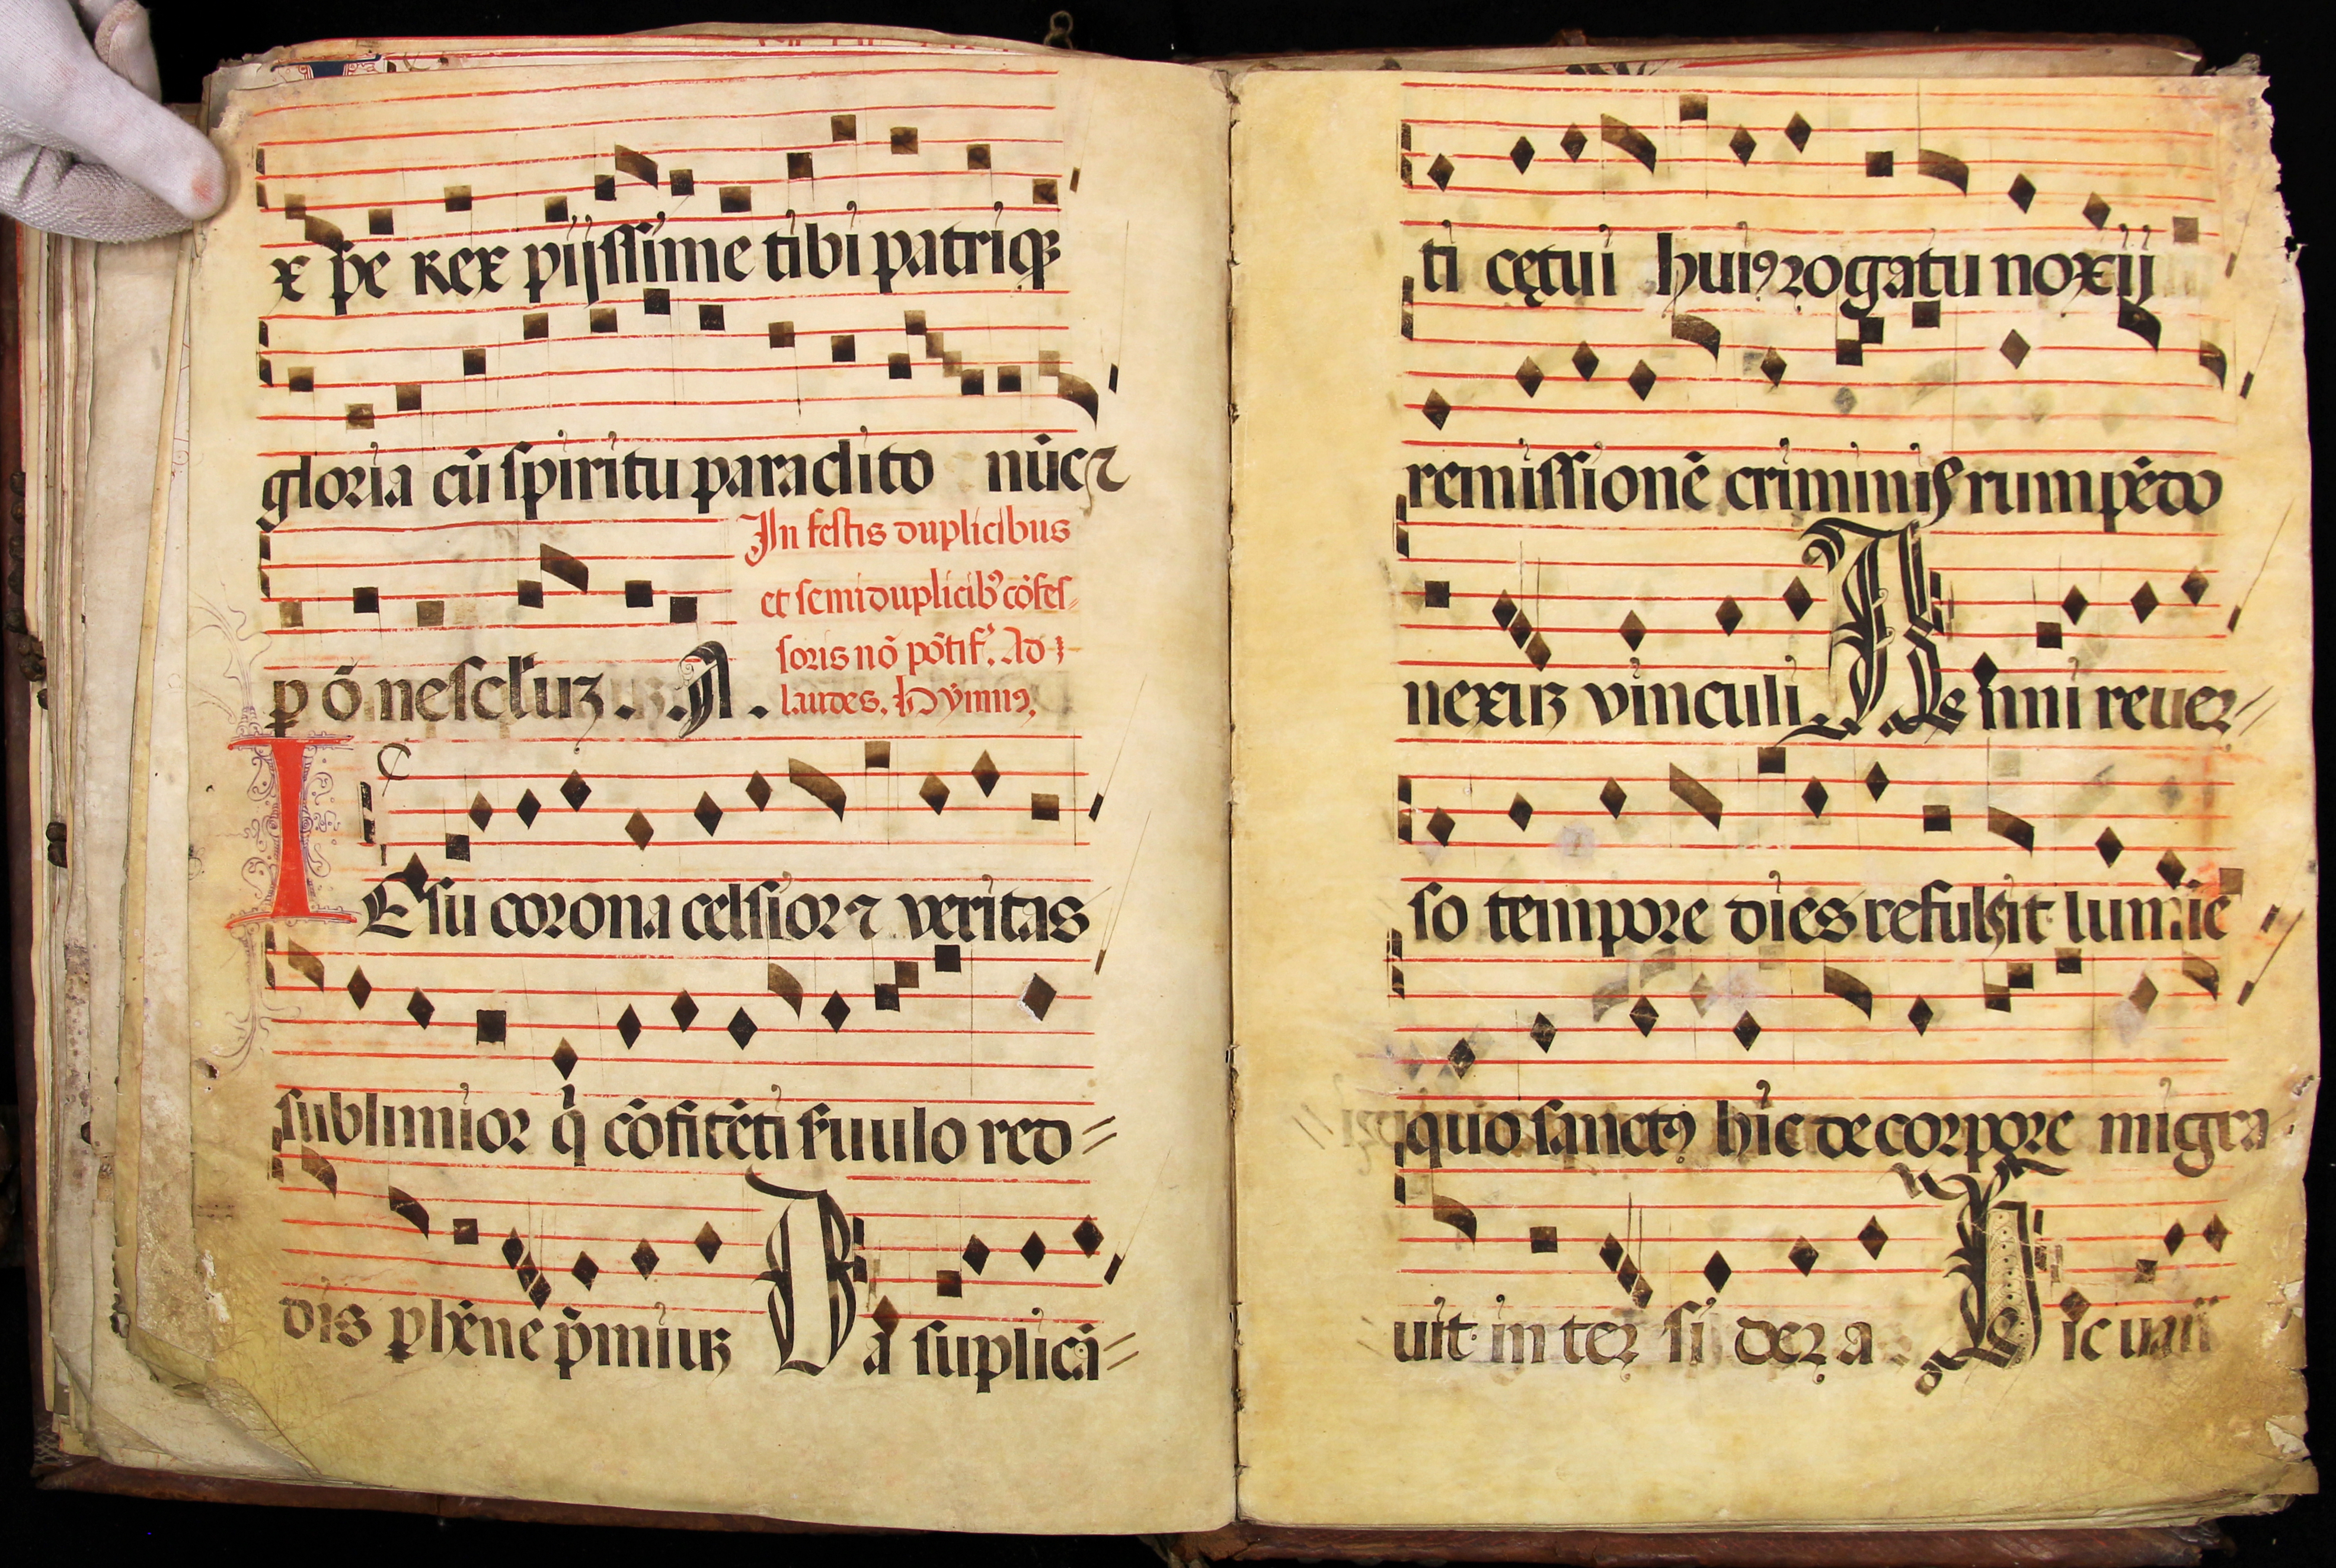 xpe Rex pijssime tibi patriqꝫ
gloria cū spiritu paraclito nūc ⁊
p ōne secluꝫ. A.
In festis duplicibus
et semiduplicibꝰ cōfes-
soris nō pōtif. Ad
laudes. Hymnꝰ.
IEsu corona celsior ⁊ veritas
sublimior q̄ cōfitēti suulo red=
dis phēne p̄miuꝫ Da suplicā=
ti cętui huiꝰ rogatu noxij
remissionē criminis rumpēdo
nexuꝫ vinculi Anni reuer=
so tempore dies refulsit lumīe
quo sanctꝰ hic de corpore migra
uit inter sidera Hic uani